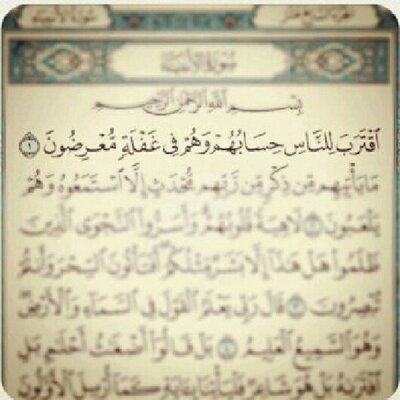 الجزء السابع عشر
سورة الأنبياء
سورة الأنبياء
بِسْمِ ٱللَّهِ ٱلرَّحْمَٰنِ ٱلرَّحِيمِ
ٱقْتَرَبَ لِلنَّاسِ حِسَابُهُمْ وَهُمْ فِى غَفْلَةٍ مُّعْرِضُونَ ١
مَا يَأْتِيهِم مِّن ذِكْرٍ مِّن رَّبِّهِم مُّحْدَثٍ إِلَّا ٱسْتَمَعُوهُ وَهُمْ
يَلْعَبُونَ ٢ لَاهِيَةً قُلُوبُهُمْ وَأَسَرُّوا۟ ٱلنَّجْوَى ٱلَّذِينَ
ظَلَمُوا۟ هَلْ هَٰذَآ إِلَّا بَشَرٌ مِّثْلُكُمْ أَفَتَأْتُونَ ٱلسِّحْرَ وَأَنتُمْ
تُبْصِرُونَ ٣ قَالَ رَبِّى يَعْلَمُ ٱلْقَوْلَ فِى ٱلسَّمَآءِ وَٱلْأَرْضِ
وَهُوَ ٱلسَّمِيعُ ٱلْعَلِيمُ ٤ بَلْ قَالُوٓا۟ أَضْغَٰثُ أَحْلَٰمٍ بَلِ
ٱفْتَرَىٰهُ بَلْ هُوَ شَاعِرٌ فَلْيَأْتِنَا بِـَٔايَةٍ كَمَآ أُرْسِلَ ٱلْأَوَّلُونَ